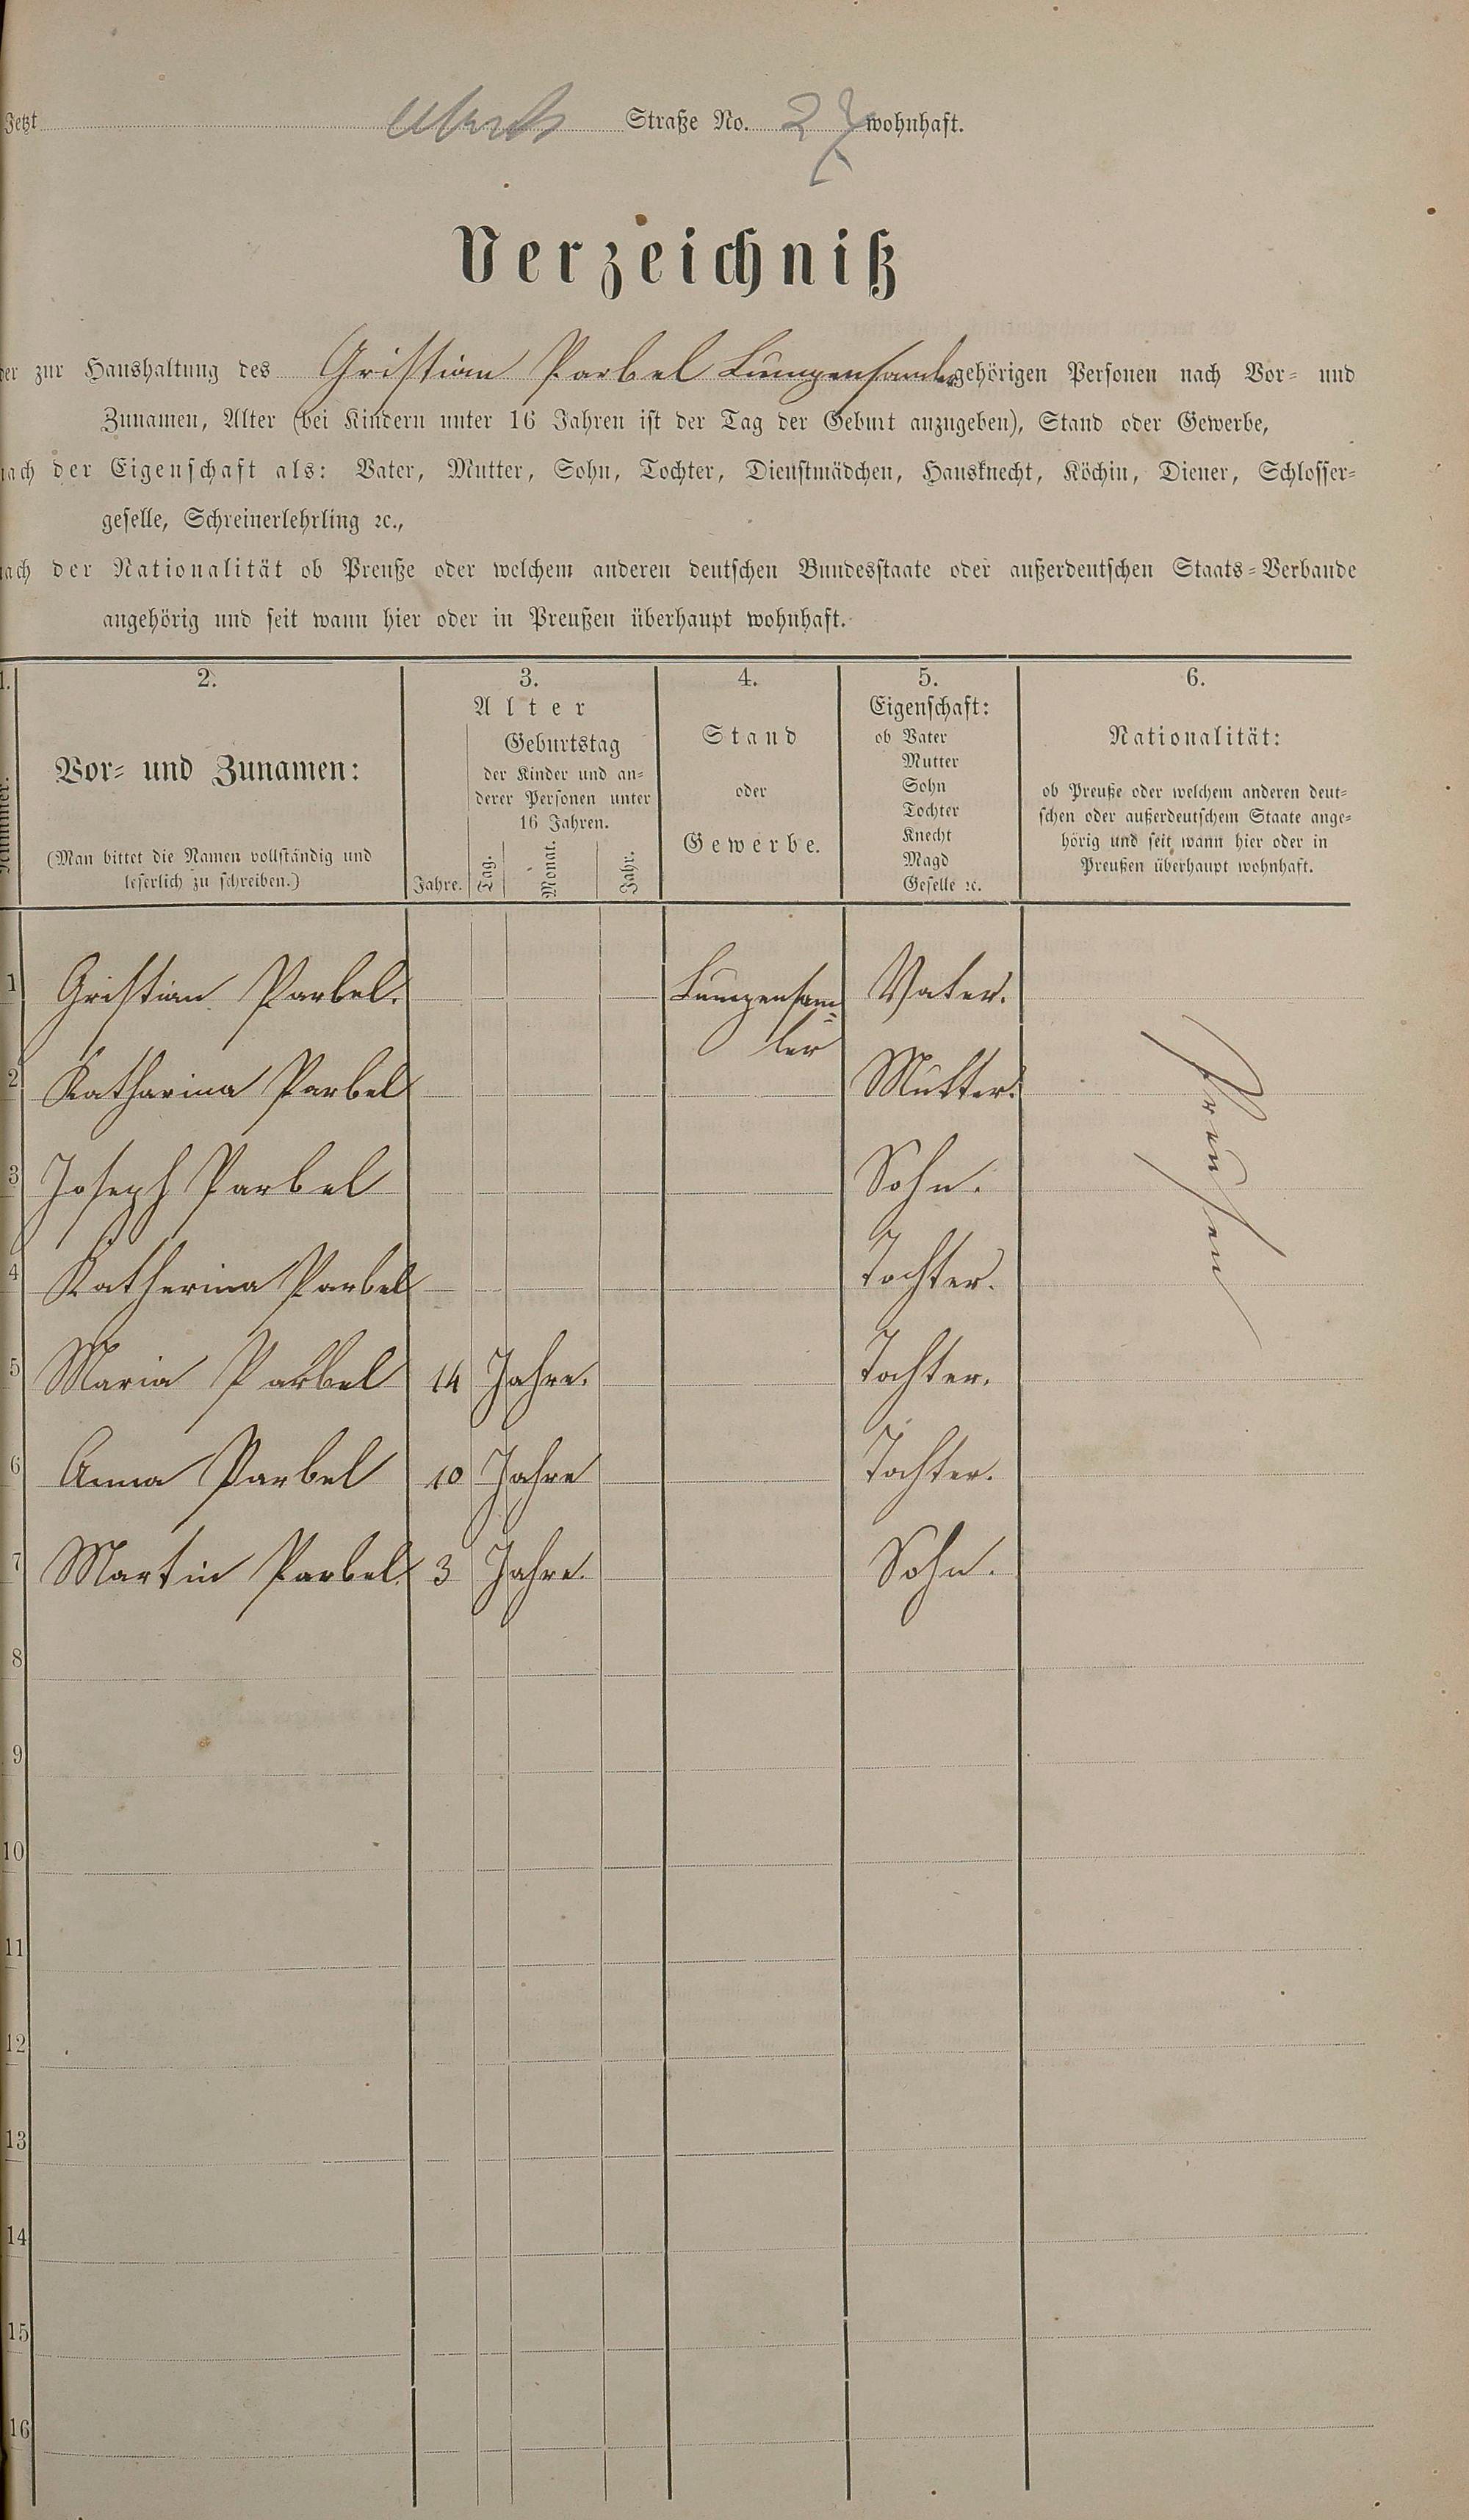 Jetzt Straße No. 27 wohnhaft.
Verzeichniß
der zur Haushaltung des Gristian Parbel Lumpensamler gehörigen Personen nach Vor- und
Zunamen, Alter (bei Kindern unter 16 Jahren ist der Tag der Geburt anzugeben), Stand oder Gewerbe,
nach der Eigenschaft als: Vater, Mutter, Sohn, Tochter, Dienstmädchen, Hausknecht, Köchin, Diener, Schlosser-
geselle, Schreinerlehrling ꝛc.,
nach der Nationalität ob Preuße oder welchem anderen deutschen Bundesstaate oder außerdeutschen Staats-Verbande
angehörig und seit wann hier oder in Preußen überhaupt wohnhaft.
1. 2. 3. 4. 5. 6.
Nummer.
Vor- und Zunamen:
(Man bittet die Namen vollständig und
leserlich zu schreiben.)
Alter
Geburtstag
der Kinder und an-
derer Personen unter
16 Jahren.
Jahre. Tag. Monat. Jahr.
Stand
oder
Gewerbe.
Eigenschaft:
ob Vater
Mutter
Sohn
Tochter
Knecht
Magd
Geselle ꝛc.
Nationalität:
ob Preuße oder welchem anderen deut-
schen oder außerdeutschem Staate ange-
hörig und seit wann hier oder in
Preußen überhaupt wohnhaft.
1 Gristian Parbel. Lumpensam= Vater.
ler
2 Katharina Parbel Mutter.
3 Joseph Parbel Sohn.
4 Katherina Parbel Tochter.
5 Maria Parbel 14 Jahre. Tochter.
6 Anna Parbel 10 Jahre Tochter.
7 Martin Parbel. 3 Jahre. Sohn.
Preußen
8
9
10
11
12
13
14
15
16